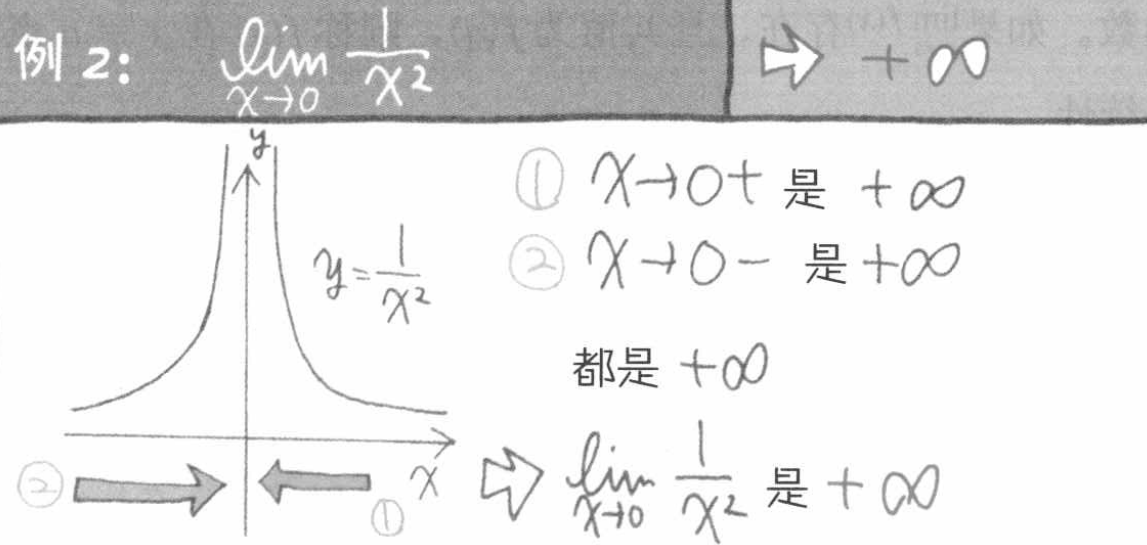 例 2: lim x→0 1/x² ⇨ +∞
y
y=1/x²
x
② ①
① x→0+ 是 +∞
② x→0- 是 +∞
都是 +∞
⇨ lim x→0 1/x² 是 +∞